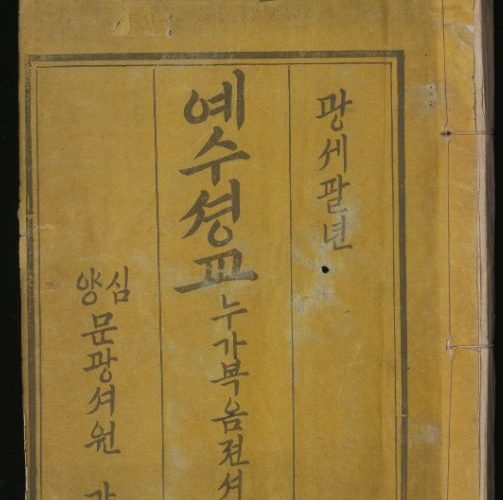 광세팔년
예수셩교누가복음젼셔
심양문광셔원